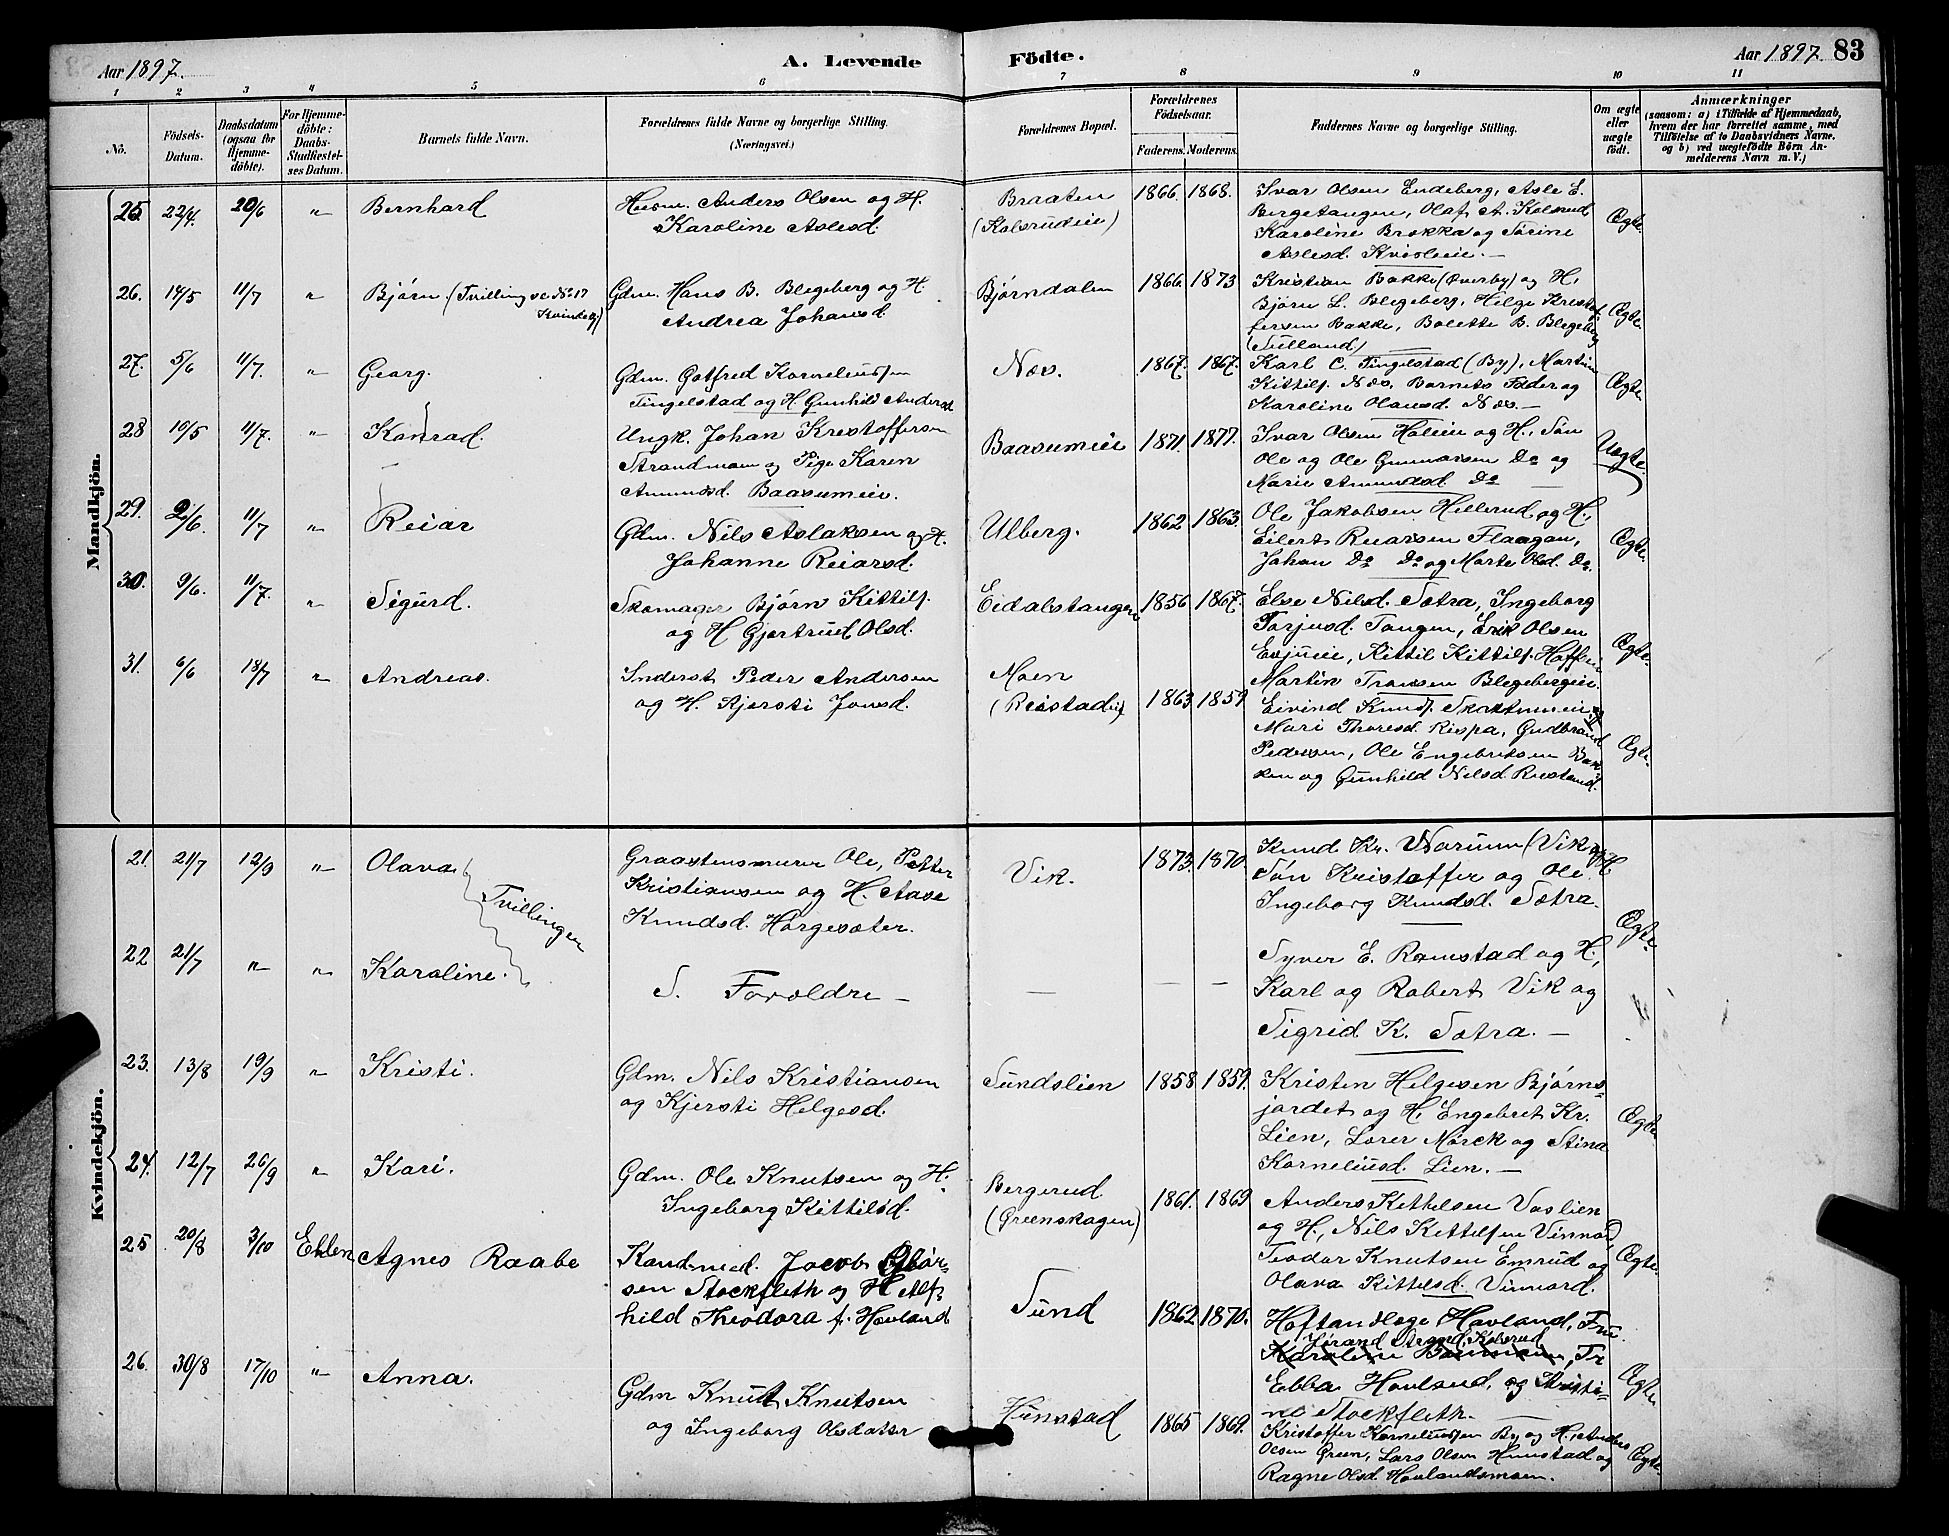 Aar 1897. A. Levende Födte. Aar 1897. 83
1 2 3 4 5 6 7 8 9 10 11
No.
Födsels-Datum.
Daabsdatum (ogsaa for Hjemme-döbte).
For Hjemme-döbte: Daabs-Stadfæstel-ses Datum.
Barnets fulde Navn.
Forældrenes fulde Navne og borgerlige Stilling.
(Næringsvei.)
Forældrenes Bopæl.
Forældrenes Födselsaar.
Faderens. Moderens.
Faddernes Navne og borgerlige Stilling.
Om ægte eller uægte födt.
Anmærkninger
(saasom: a) i Tilfælde af Hjemmedaab,
hvem der har forrettet samme, med
Tilföielse af to Daabsvidners Navne.
og b) ved uægtefödte Börn An-
melderens Navn m. V.)
Mandkjön.
25 22/4. 20/6 " Bernhard
Husm. Anders Olsen og H.
Karoline Aslesd.
Braaten
(Kolsrudeie)
1866. 1868.
Ivar Olsen Endeberg, Asle E.
Bergetangen, Olaf A. Kolsrud
Karoline Brokka og Sörine
Aslesd. Kvisleie. —
Ægte.
26. 14/5 11/7 " Björn (Tvilling se No 17
Kvindekj)
Gdm. Hans B. Blegeberg og H
Andrea Johansd.
Björndalen
1866. 1873
Kristian Bakke (Överby) og H.
Björn L. Blegeberg, Helge Kristof
fersen Bakke, Bolette B. Blegeberg
Ægte.
27. 5/6 11/7. " Georg.
Gdm. Gotfred Korneliussen
Tingelstad og H. Gunhild Andersd
Næs.
1867. 1867.
Karl C. Tingelstad (By), Martin
Kittils. Næs, Barnets Fader og
Karoline Olausd. Næs. —
Ægte.
28 10/5 11/7. " Konrad.
Ungk. Johan Kristoffersen
Strandmoen og Pige Karen
Amundsd. Baasumeie.
Baasumeie
1871. 1877.
Ivar Olsen Holeie og H., Sön
Ole og Ole Gunnarsen Do og
Marie Amundsd. Do —
Uægte.
29. 2/6. 11/7 " Reiar
Gdm. Nils Aslaksen og H.
Johanne Reiarsd.
Ulberg.
1862 1863.
Ole Jakobsen Hellerud og H.,
Eilert Reiarsen Flaagan,
Johan Do Do og Marte Olsd. Do.
Ægte.
30. 9/6. 11/7. " Sigurd.
Skomager Björn Kittils.
og H Gjertrud Olsd.
Eidalstangen
1856 1867.
Else Nilsd. Sætra, Ingeborg
Torjusd. Tangen, Erik Olsen
Evjueie, Kittil Kittils.
Martin Blegebergeie.
Ægte.
31. 6/6 18/7 " Andreas.
Inderst Peder Andersen
og H. Kjersti Jonsd.
Moen
1863. 1859
Eivind Knuds.
Mari Thoresd. Rispa, Gudbrand
Pedersen, Ole Engebretsen Bak-
ken og Gunhild Nilsd.
Ægte.
Kvindekjön.
21. 21/7 12/9 " Olava. Tvillinger
Graastensmurer Ole, Petter
Kristiansen og H. Aase
Knudsd. Hargesæter.
Vik.
1873. 1870.
Knud Kr. (Vik) og H
Sön Kristoffer og Ole.
Ingeborg Knudsd. Sætra.
Ægte.
22 21/7 " " Karoline.
S. Forældre —
— — —
Syver E. Ramstad og H.,
Karl og Robert Vik og
Sigrid K. Sætra. —
23. 13/8 19/9 " Kristi.
Gdm. Nils Kristiansen
og Kjersti Helgesd.
Sundslien
1858 1859.
Kristen Helgesen Björns-
jordet og H. Engebret Kr.
Lien, Lorer Mörck og Stina
Korneliusd. Lien. —
Ægte
24. 12/7 26/9 " Kari.
Gdm. Ole Knutsen og H.
Ingeborg Kittilsd.
Bergerud
(Greenskogen)
1861. 1869
Anders Kethelsen Vaslien
og H., Nils Kettelsen Vinnord,
Teodor Knutsen Emrud og
Olava Kittelsd. Vinnord.
Ægte.
25 20/8 3/10 Agnes Raabe
Kand. med. Jacob
sen Stockfleth og H Alf-
hild Theodora f. Hovland
Sund
1862 1870.
Hovland, Fru
Jörand Strand, Kolsrud
Karoline
Ebba Hovland, og Kristi-
ne Stockfleth.
Ægte
26. 30/8 17/10 " Anna.
Gdm Knut Knutsen
og Ingeborg Olsdatter
Hunstad
1865 1869.
Kristoffer Korneliussen By og H., Anders
Olsen Green, Lars Olsen Hunstad og
Ragne Olsd. Hovlandsmoen.
Ægte.